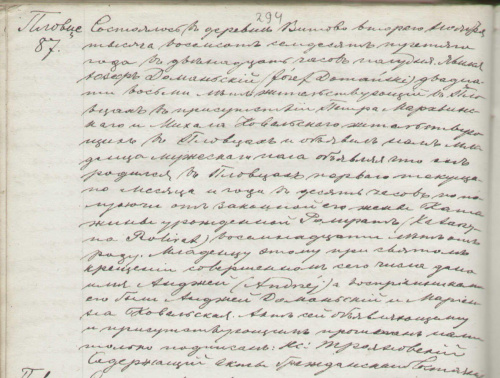 294
Пловце
87.
Состоялось въ деревнѣ Витово второго ноября
тысяча восемьсотъ семьдесятъ третяго
года въ двѣнадцать часовъ полудня. Явился
Іосифъ Доманьскій (Józef Domański) двадца-
ти восьми лѣтъ жительствующій въ Пло-
вцахъ въ присутствіи Петра
скаго и Михала Ковальскаго жительствую-
щихъ въ Пловцахъ и объявилъ намъ мла-
денца мужескаго пола объявляя что онъ
родился въ Пловцахъ перваго текуща-
го мѣсяца и года въ десять часовъ по по-
лудни отъ законной его жены Ката-
жины урожденной (Katarzy-
на восемнадцати лѣтъ отъ
роду. Младенцу этому при святомъ
крещеніи совершенномъ сего числа дано
имя Анджей (Andrzéj) а воспріемниками
его были Анджей Доманьскій и Марiян-
на Ковальская. Актъ сей объявляющему
и присутствующимъ прочитанъ нами
только подписанъ: Кс:
Содержащій акты гражданскаго состоянія